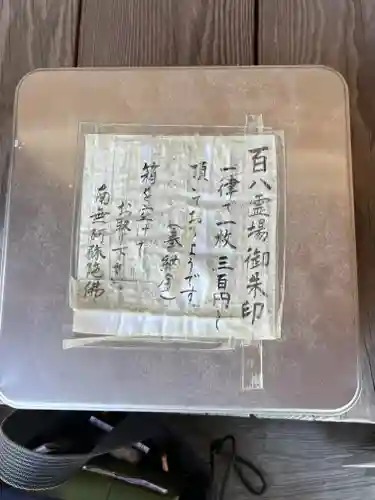 百八霊場御朱印
一律で一枚三百円と
頂いておるようです。
（基納金）
箱を空けて
お取り下さい
南無阿弥陀佛